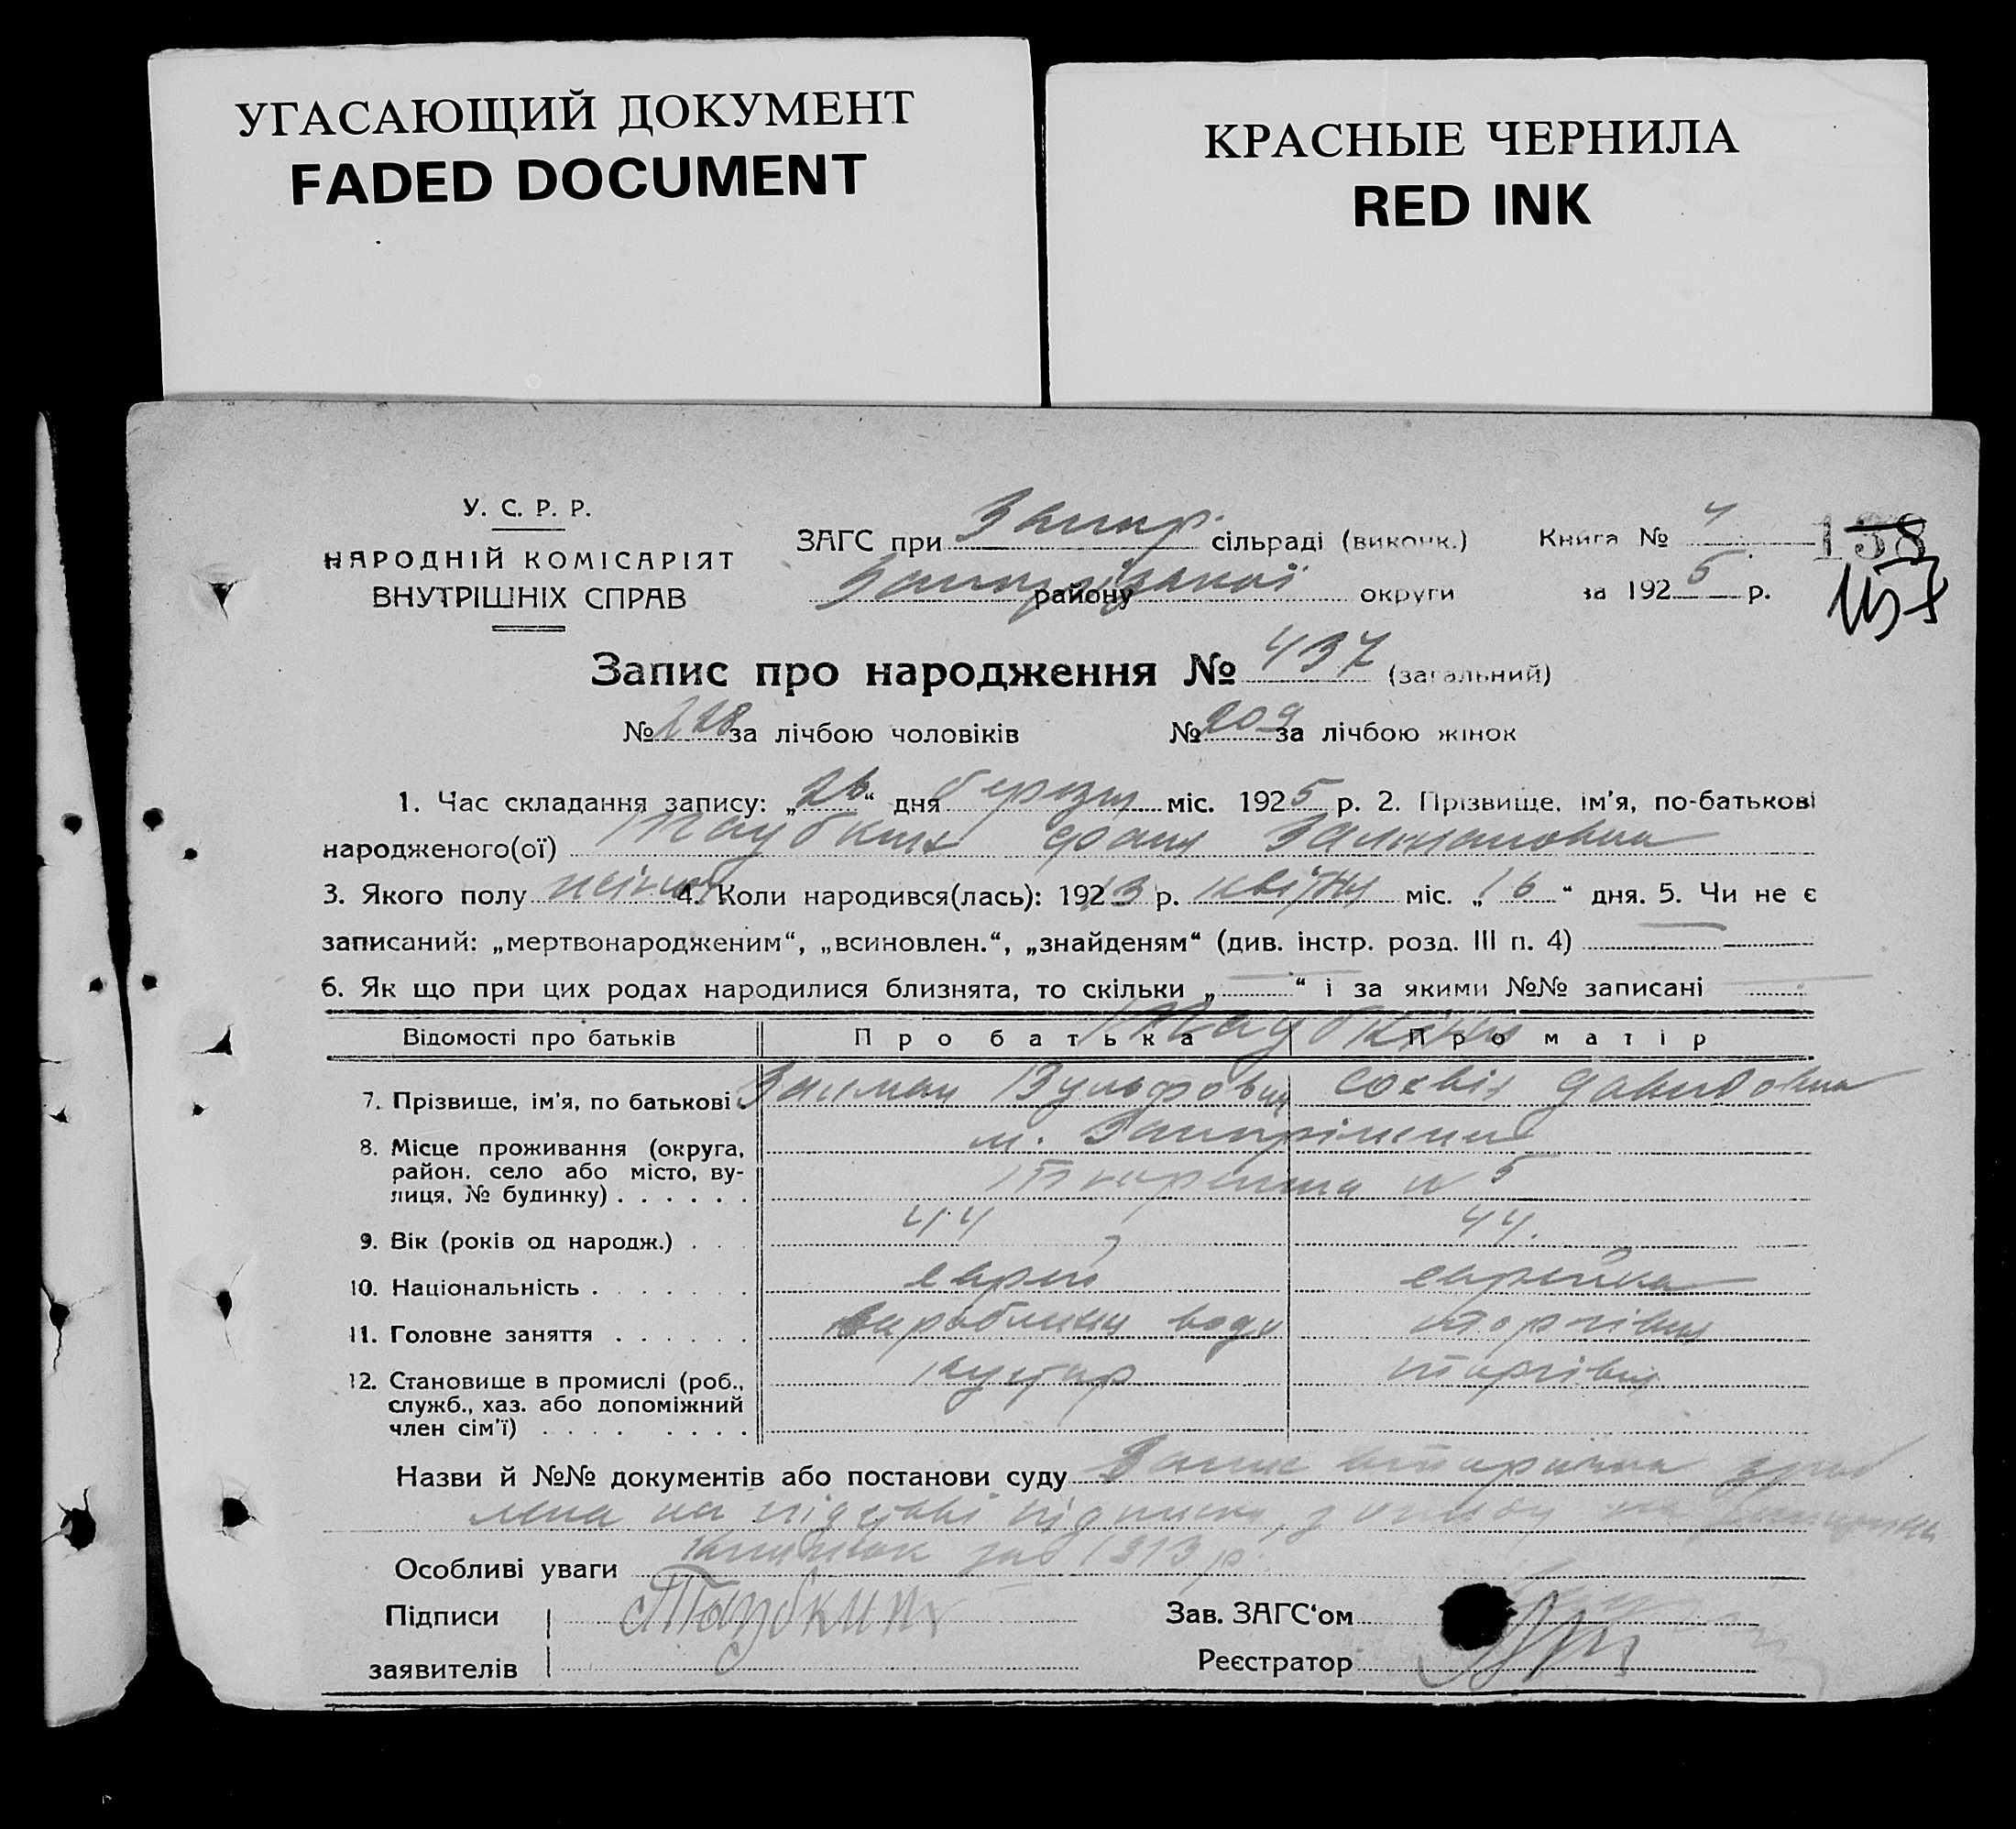 УГАСАЮЩИЙ ДОКУМЕНТ
FADED DOCUMENT
КРАСНЫЕ ЧЕРНИЛА
RED INK
У. С. Р. Р.
НАРОДНІЙ КОМІСАРІЯТ
ВНУТРІШНІХ СПРАВ
ЗАГС при Запор. сільраді (виконк.)
Запорізької району округи
Книга № 4
за 1925 р.
138
157
Запис про народження № 437 (загальний)
№ 228 за лічбою чоловіків № 209 за лічбою жінок
1. Час складання запису: „26“ дня березня міс. 1925 р. 2. Прізвище, ім'я, по-батькові
народженого(ої) Таубкин Фаня Залмановна
3. Якого полу жіноч. 4. Коли народився(лась): 19213 р. квітня міс. „16“ дня. 5. Чи не є
записаний: „мертвонародженим“, „всиновлен.“, „знайденям“ (див. інстр. розд. III п. 4)
6. Як що при цих родах народилися близнята, то скільки „ “ і за якими №№ записані
Таубкины
Відомості про батьків Про батька Про матір
7. Прізвище, ім'я, по батькові Залман Вульфович Софія Давидовна
8. Місце проживання (округа, район, село або місто, вулиця, № будинку) м. Запоріжжя
№ 5
9. Вік (років од народж.) 44 44.
10. Національність еврей еврейка
11. Головне заняття вироблення води торгівля
12. Становище в промислі (роб., служб., хаз. або допоміжний член сім'ї) кустар торгівля
Назви й №№ документів або постанови суду Запис вторична
на підставі підписки,
Особливі уваги за 1913 р.
Підписи заявителів Таубкин
Зав. ЗАГС'ом
Реєстратор